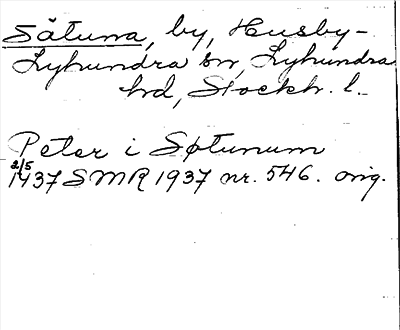 Såtuna, by, Husby-
Lyhundra sn, Lyhundra
hd, Stockh. l.
Peter i Søtunum
2/5
1437 SMR 1937 nr. 546. orig.